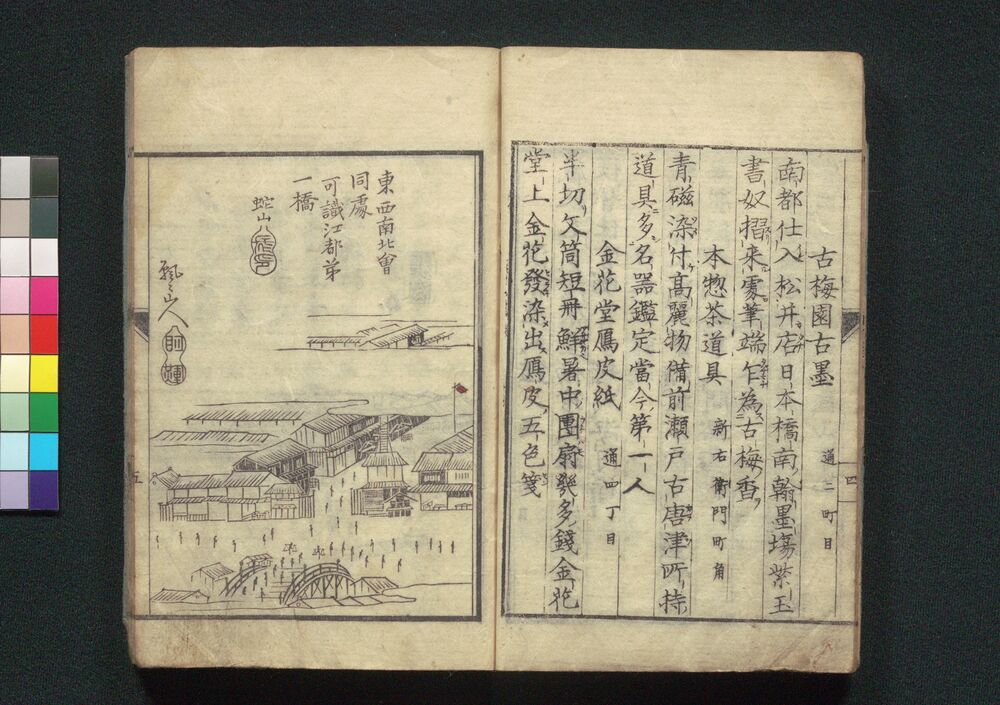 古梅園古墨 通二町目
南都仕入松井店日本橋南翰墨場紫玉
書奴摺来處筆端乍為古梅香
本惣茶道具 新右衛門町角
青磁染付高麗物備前瀬戸古唐津所持
道具多名器鑑定當今第一人
金花堂鴈皮紙 通四丁目
半切文筒短冊鮮暑中團扇幾多錢金花
堂上金花發染出鴈皮五色箋
四
東西南北會
同處
可識江都第
一橋
蛇山
五